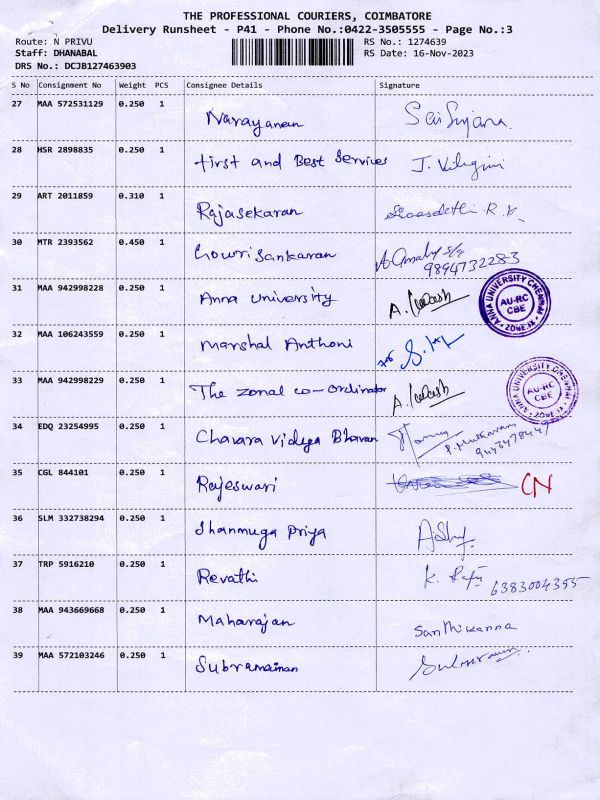 THE PROFESSIONAL COURIERS, COIMBATORE
Delivery Runsheet - P41 - Phone No.:0422-3505555 - Page No.:3
Route: N PRIVU RS No.: 1274639
Staff: DHANABAL RS Date: 16-Nov-2023
DRS No.: DCJB127463903
S No Consignment No Weight PCS Consignee Details Signature
27 MAA 572531129 0.250 1 Narayanan
28 HSR 2898835 0.250 1 First and Best Services
29 ART 2011859 0.310 1 Rajasekaran
30 MTR 2393562 0.450 1 Gowri Sankaran
9894732283
31 MAA 942998228 0.250 1 Anna University
ANNA UNIVERSITY CHENNAI
AU-RC
CBE
ZONE-IX
32 MAA 106243559 0.250 1 Marshal Anthoni
33 MAA 942998229 0.250 1 The zonal co-ordinator
ANNA UNIVERSITY CHENNAI
AU-RC
CBE
ZONE-IX
34 EDQ 23254995 0.250 1 Chavara Vidya Bhavan
35 CGL 844101 0.250 1 Rajeswari CN
36 SLM 332738294 0.250 1 Shanmuga Priya
37 TRP 5916210 0.250 1 Revathi
6383004355
38 MAA 943669668 0.250 1 Maharajan Santhikanna
39 MAA 572103246 0.250 1 Subramainan